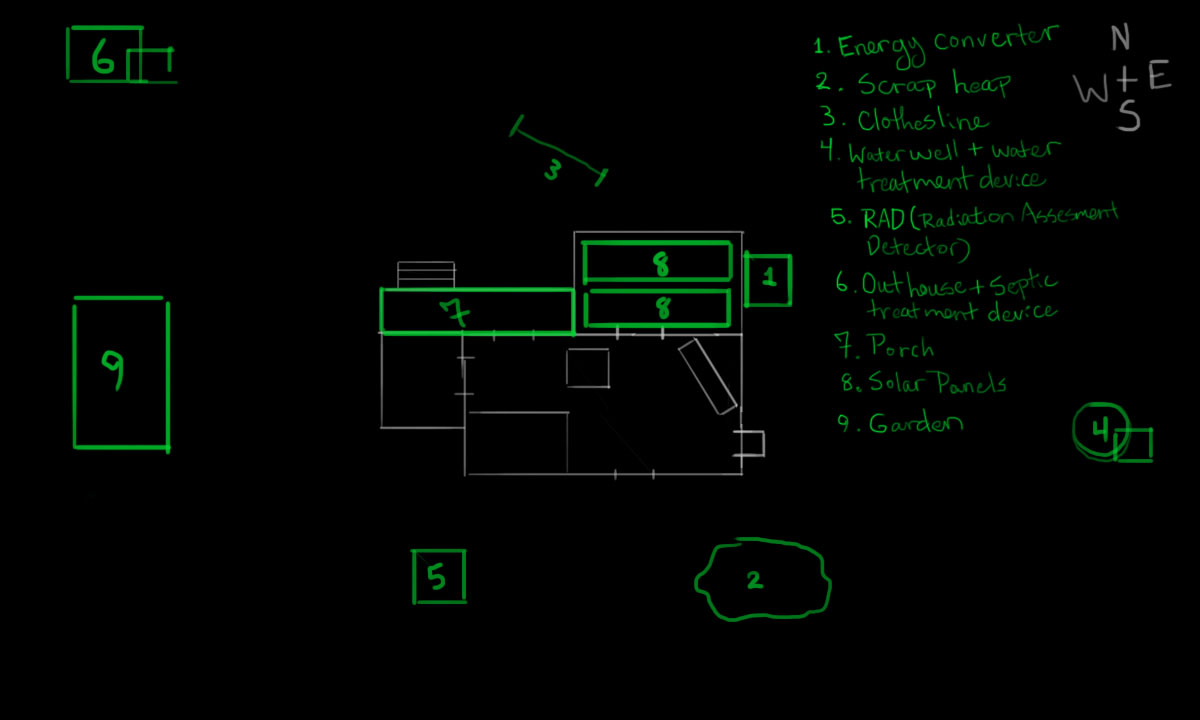 6
3
8
1
7
8
9
5
2
4
1. Energy converter
2. Scrap heap
3. Clothesline
4. Water well + water
treatment device
5. RAD (Radiation Assesment
Detector)
6. Outhouse + Septic
treatment device
7. Porch
8. Solar Panels
9. Garden
N
W + E
S